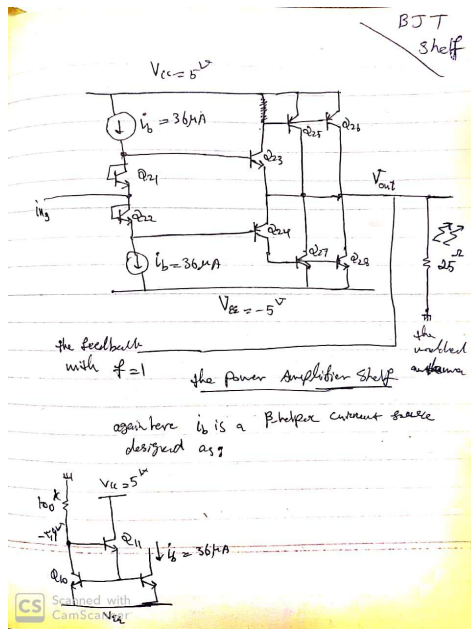 BJT
Shelf
Vcc = 5v
ib = 36μA
Q25
Q26
Q23
Q21
Vout
ing
Q22
Q24
25Ω
ib = 36μA
Q27
Q28
VEE = -5v
the feedback
with f=1
the
matched
antenna
the power Amplifier Shelf
again here ib is a β-helper current source
designed as:
Vcc = 5v
100k
Q11
ib = 36μA
Q10
VEE
CS Scanned with
CamScanner